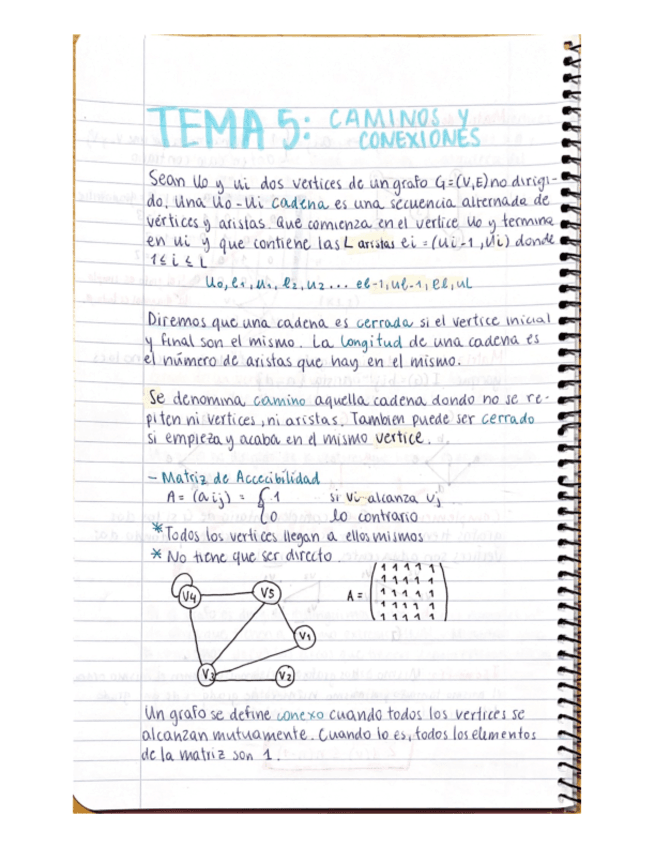 TEMA 5: CAMINOS Y
CONEXIONES
Sean Uo y ui dos vertices de un grafo G=(V,E) no dirigi-
do. Una Uo-Ui cadena es una secuencia alternada de
vértices y aristas. Que comienza en el vertice Uo y termina
en ui y que contiene las L aristas ei = (ui-1, Ui) donde
1 ≤ i ≤ L
U0, e1, u1, e2, u2 ... el-1, ul-1, el, uL
Diremos que una cadena es cerrada si el vertice inicial
y final son el mismo. La longitud de una cadena es
el número de aristas que hay en el mismo.
Se denomina camino aquella cadena dondo no se re-
piten ni vertices, ni aristas. Tambien puede ser cerrado
si empieza y acaba en el mismo vertice.
- Matriz de Accecibilidad
A = (aij) = { 1 si vi alcanza vj
0 lo contrario
* Todos los vertices llegan a ellos mismos
* No tiene que ser directo
V4 V5
V1
V3 V2
A = ( 1 1 1 1 1
1 1 1 1 1
1 1 1 1 1
1 1 1 1 1
1 1 1 1 1 )
Un grafo se define conexo cuando todos los vertices se
alcanzan mutuamente. Cuando lo es, todos los elementos
de la matriz son 1.